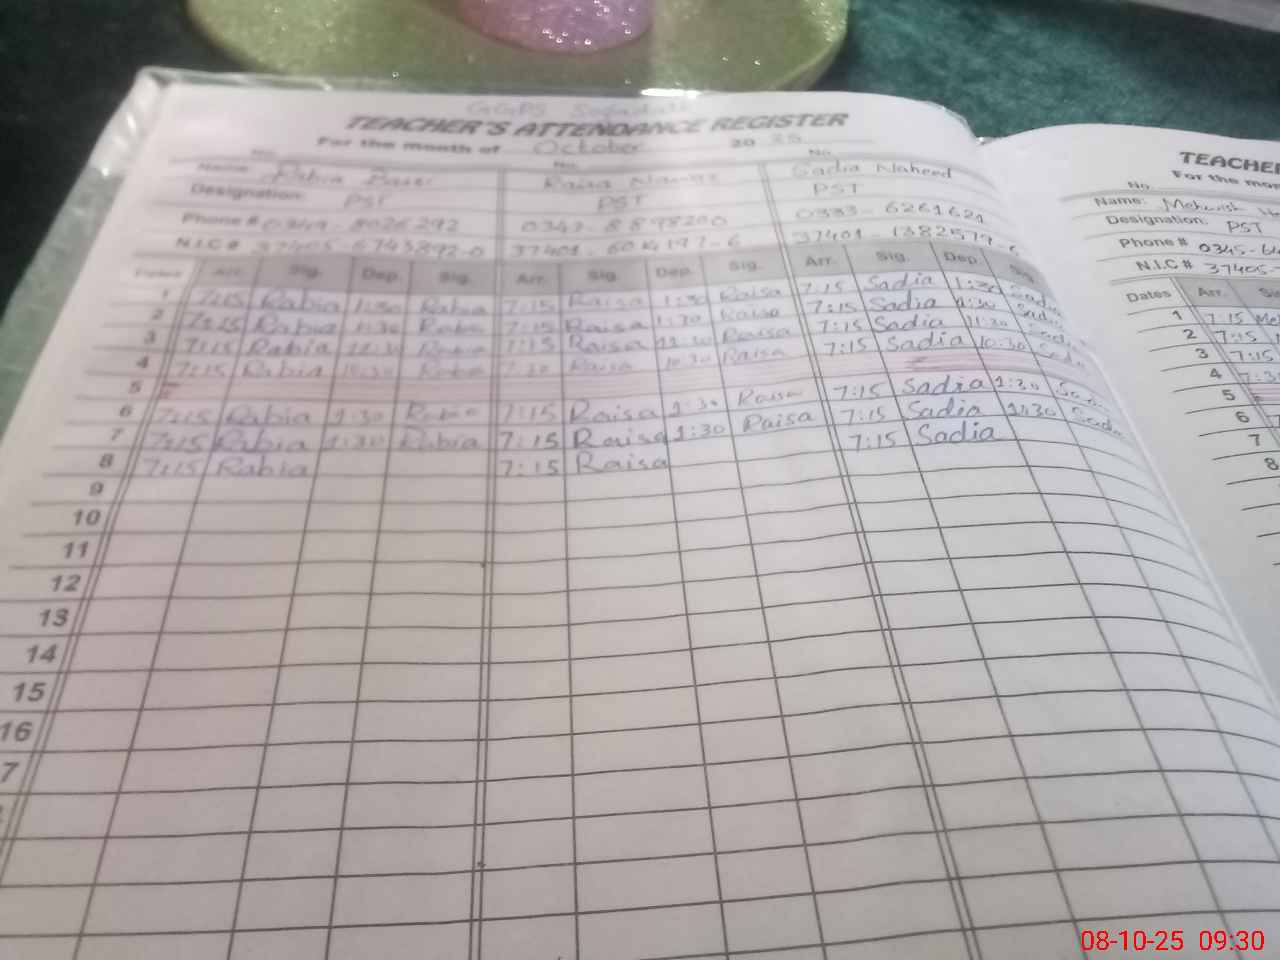 GGPS
TEACHER'S ATTENDANCE REGISTER
For the month of October 20 25
No. No. No.
Name: Rabia Raisa Nawaz Sadia Naheed
Designation: PST PST PST
Phone # 0333-6261621
N.I.C #
Dates Arr. Sig. Dep. Sig. Arr. Sig. Dep. Sig. Arr. Sig. Dep. Sig.
1 7:15 Rabia 1:30 Rabia 7:15 Raisa 1:30 Raisa 7:15 Sadia 1:30 Sadia
2 7:15 Rabia 1:30 Rabia 7:15 Raisa 1:30 Raisa 7:15 Sadia 1:30 Sadia
3 7:15 Rabia Rabia 7:15 Raisa Raisa 7:15 Sadia Sadia
4 7:15 Rabia 10:30 Rabia Raisa 10:30 Raisa 7:15 Sadia 10:30 Sadia
5
6 7:15 Rabia 1:30 Rabia 7:15 Raisa 1:30 Raisa 7:15 Sadia 1:30 Sadia
7 7:15 Rabia 1:30 Rabia 7:15 Raisa 1:30 Raisa 7:15 Sadia 1:30 Sadia
8 7:15 Rabia 7:15 Raisa 7:15 Sadia
9
10
11
12
13
14
15
16
7
TEACHE
For the mon
No.
Name: Mehwish
Designation: PST
Phone # 0345-
N.I.C # 37405-
Dates Arr.
1 7:15
2 7:15
3 7:15
4 7:3
5
6 7:15
7
8
08-10-25 09:30